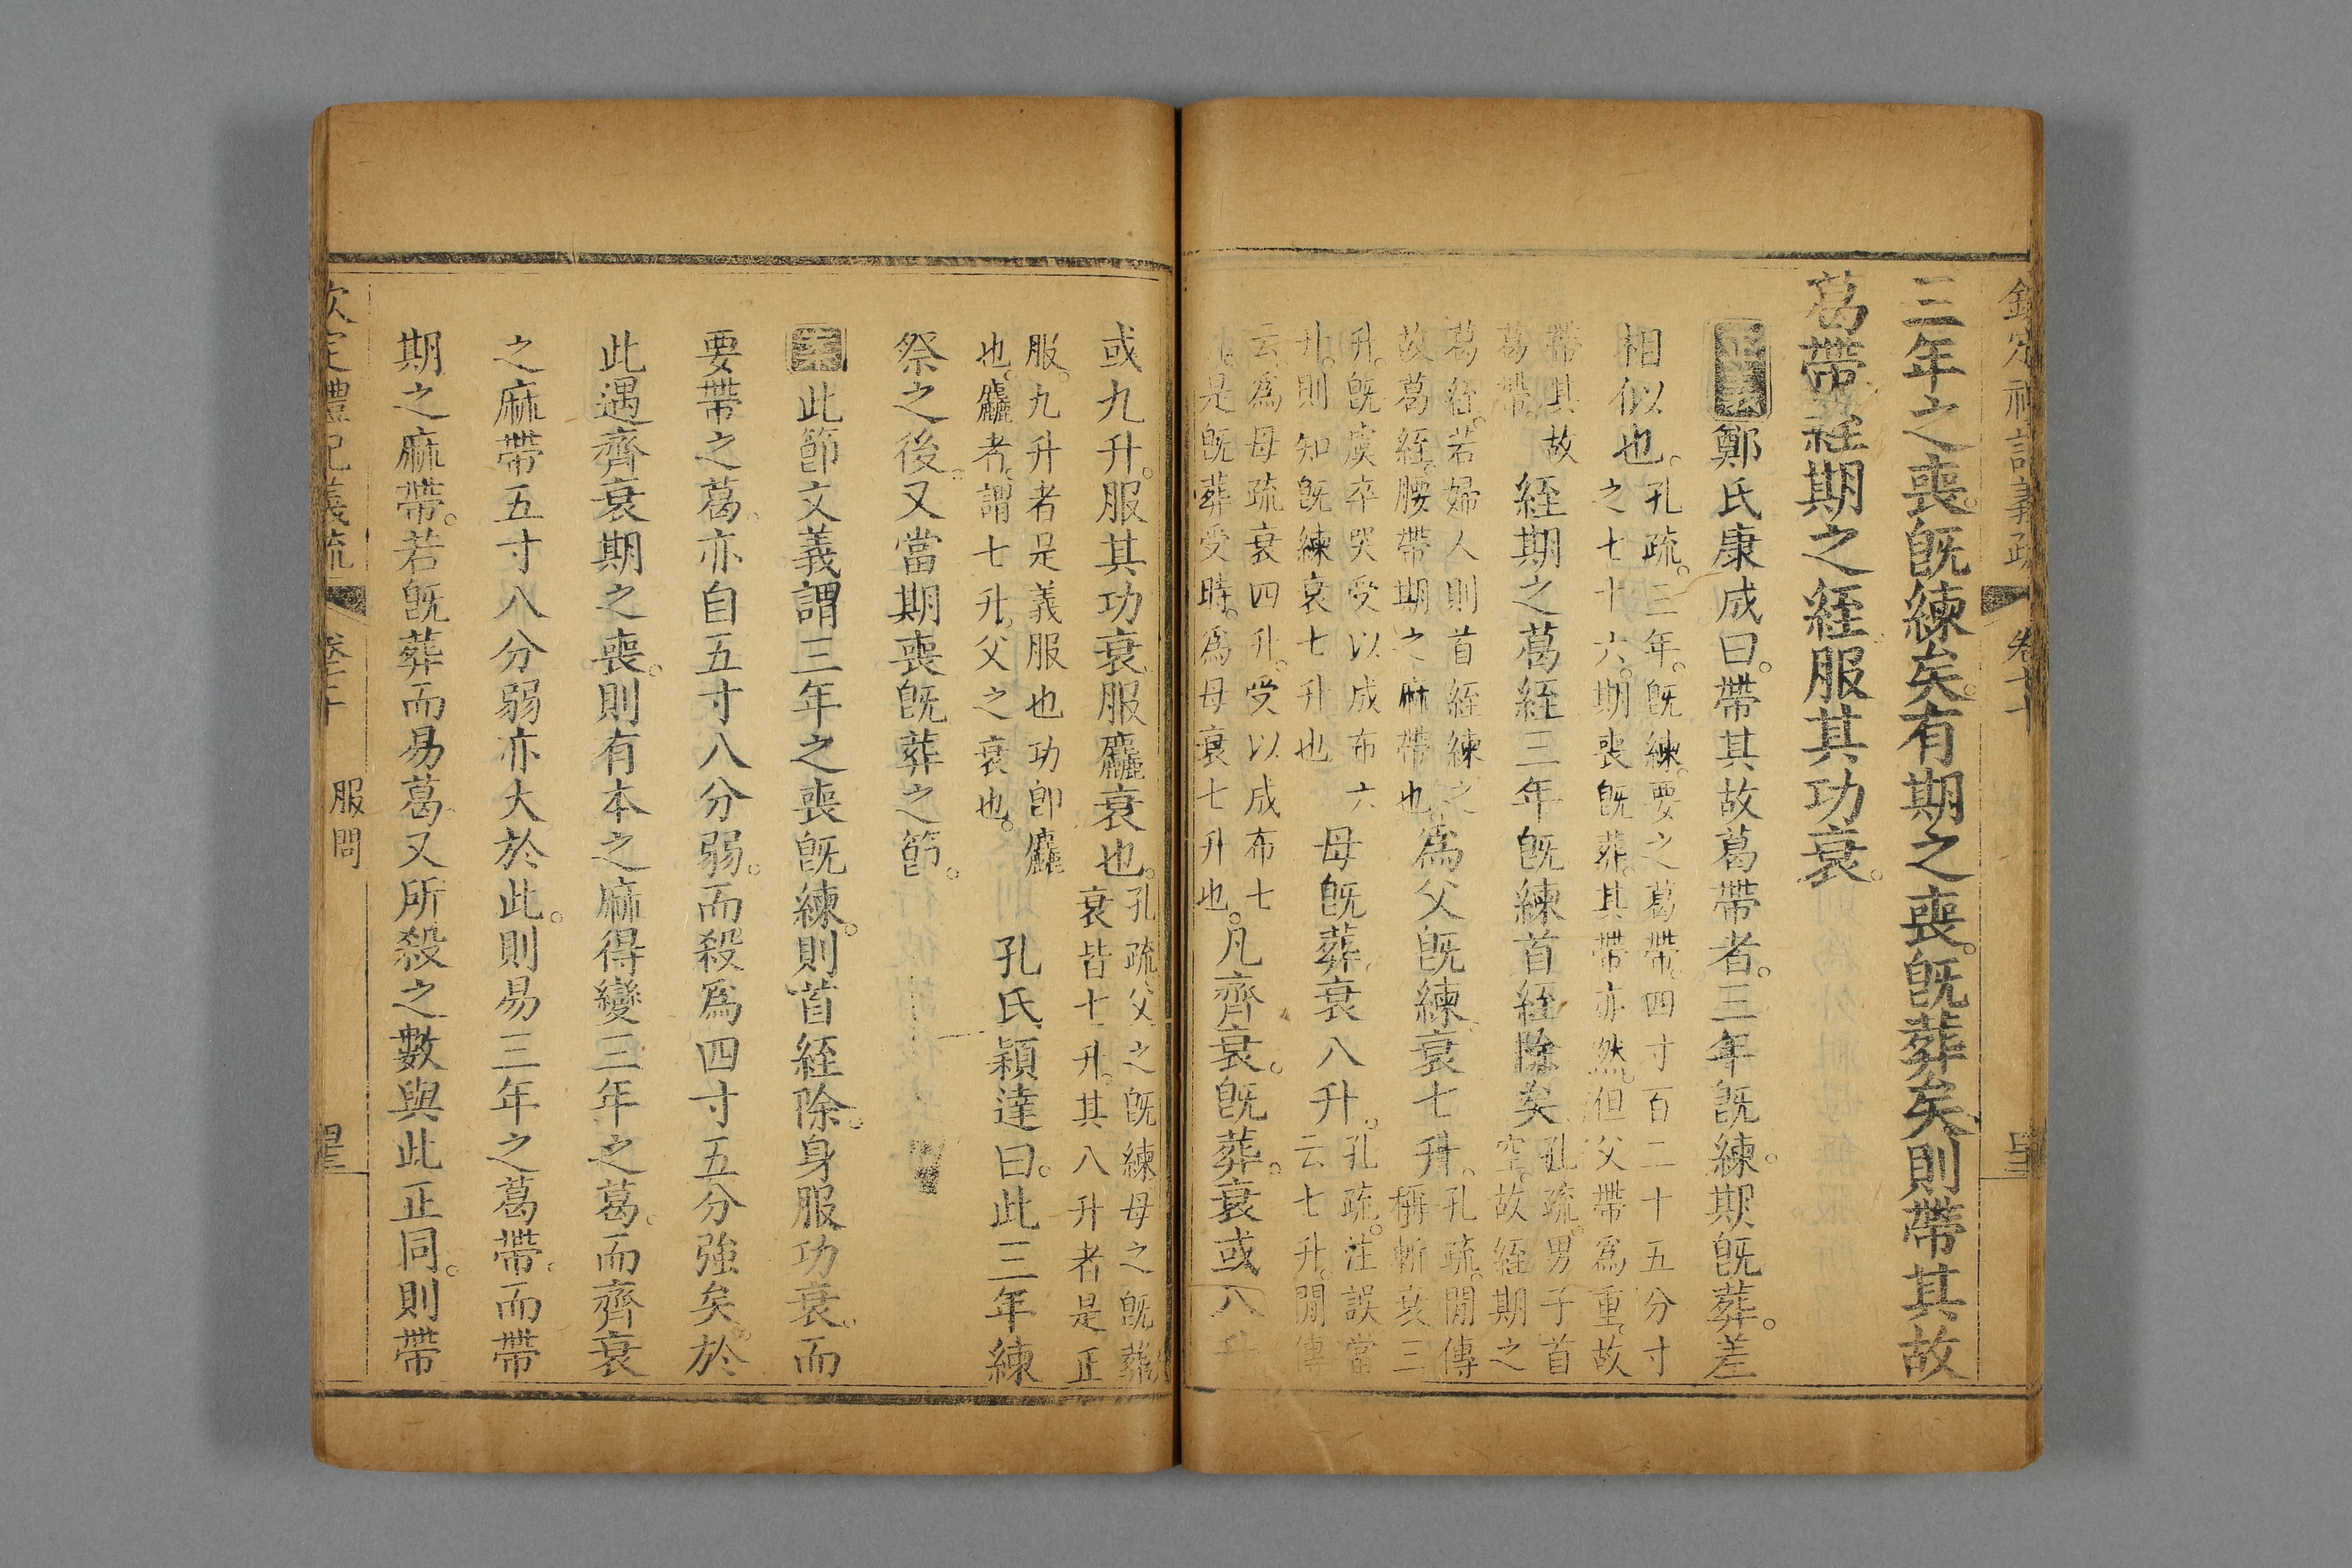 三年之喪。旣練矣。有期之喪。旣葬矣。則帶其故
葛帶。絰期之絰。服其功衰。
正義鄭氏康成曰。帶其故葛帶者。三年旣練。期旣葬。差
相似也。孔疏。三年。旣練。要之葛帶。四寸百二十五分寸
之七十六。期喪旣葬。其帶亦然。但父帶爲重。故
帶其故
葛帶。絰期之葛絰。三年旣練。首絰除矣。孔疏。男子首
空。故絰期之
葛絰。若婦人則首絰練之
故葛絰。腰帶期之麻帶也。爲父旣練。衰七升。孔疏。閒傳
稱斬衰三
升。旣虞卒哭。受以成布六
升。則知旣練衰七升也母旣葬。衰八升。孔疏。注誤當
云七升。閒傳
云。爲母疏衰四升。受以成布七
是旣葬受時。爲母衰七升也。凡齊衰。旣葬。衰或八升
或九升。服其功衰。服麤衰也。孔疏。父之旣練母之旣葬
衰皆七升。其八升者是正
服。九升者是義服也功卽麤
也。麤者。謂七升。父之衰也。孔氏穎達曰。此三年練
祭之後。又當期喪旣葬之節。
此節文義。謂三年之喪旣練。則首絰除。身服功衰。而
要帶之葛。亦自五寸八分弱。而殺爲四寸五分強矣。於
此遇齊衰期之喪。則有本之麻得變三年之葛。而齊衰
之麻帶五寸八分弱亦大於此。則易三年之葛帶。而帶
期之麻帶。若旣葬而易葛。又所殺之數與此正同。則帶
服問